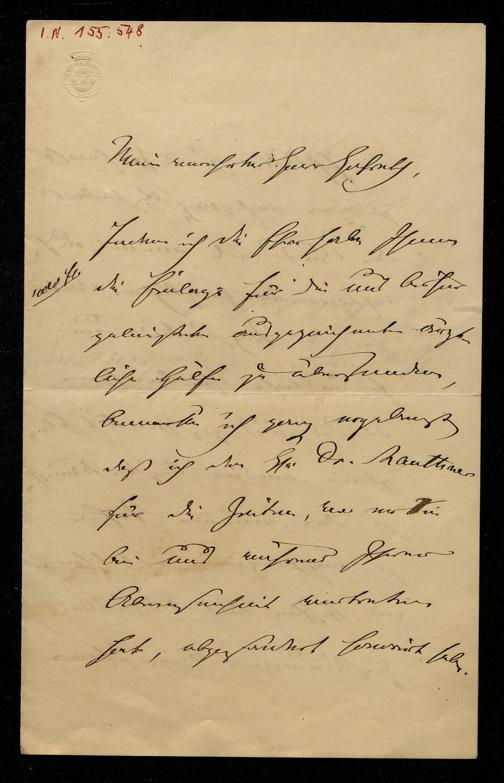 I.N. 155.548
Mein verehrter Herr Hofrath,
Indem ich die Ehre habe Ihnen
die Einlage für die uns bisher
geleistete ausgezeichnete ärzt-
liche Hülfe zu übersenden,
bemerke ich ganz
daß ich den Hr Dr. Mauthner
für die Zeiten, wo er Sie
bei uns während Ihrer
Abwesenheit vertreten
hat, abgesondert honorirt habe.